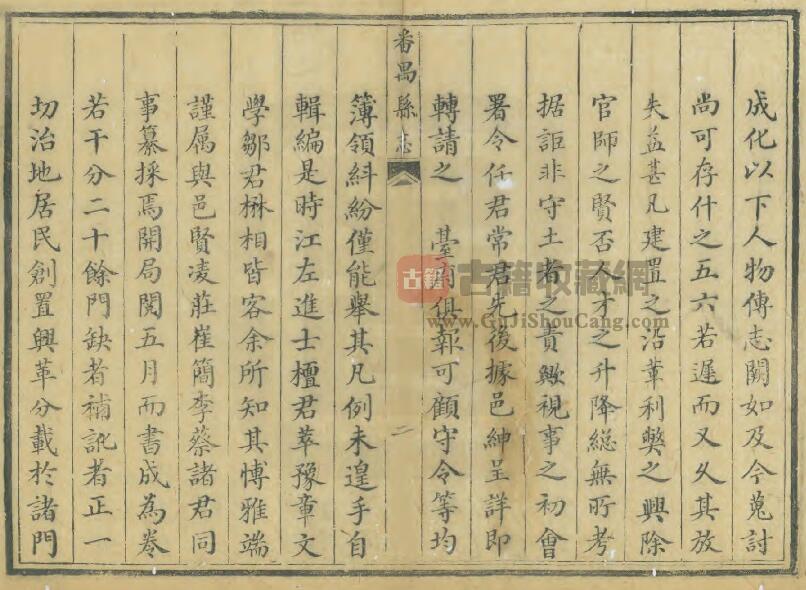 成化以下人物傳志闕如及今蒐討
尚可存什之五六若遲而又久其放
失益甚凡建置之沿革利獘之興除
官師之賢否人才之升降総無所考
据詎非守土者之責歟視事之初會
署令任君常君先後據邑紳呈詳即
轉請之 臺甬俱報可顧守令等均
番禺縣志
二
簿領糾紛僅能舉其凡例未遑手自
輯編是時江左進士檀君萃豫章文
學鄒君楙相皆客余所知其博雅端
謹属與邑賢凌莊崔簡李蔡諸君同
事纂採焉開局閱五月而書成為卷
若干分二十餘門缺者補訛者正一
切治地居民創置興革分載於諸門
古籍
古籍收藏網
www.GuJiShouCang.com